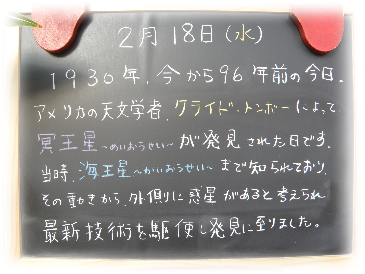 2月18日(水)
1930年、今から96年前の今日、
アメリカの天文学者、クライド・トンボーによって
冥王星~めいおうせい~が発見された日です。
当時、海王星~かいおうせい~まで知られており、
その動きから、外側に惑星があると考えられ
最新技術を駆使し発見に至りました。